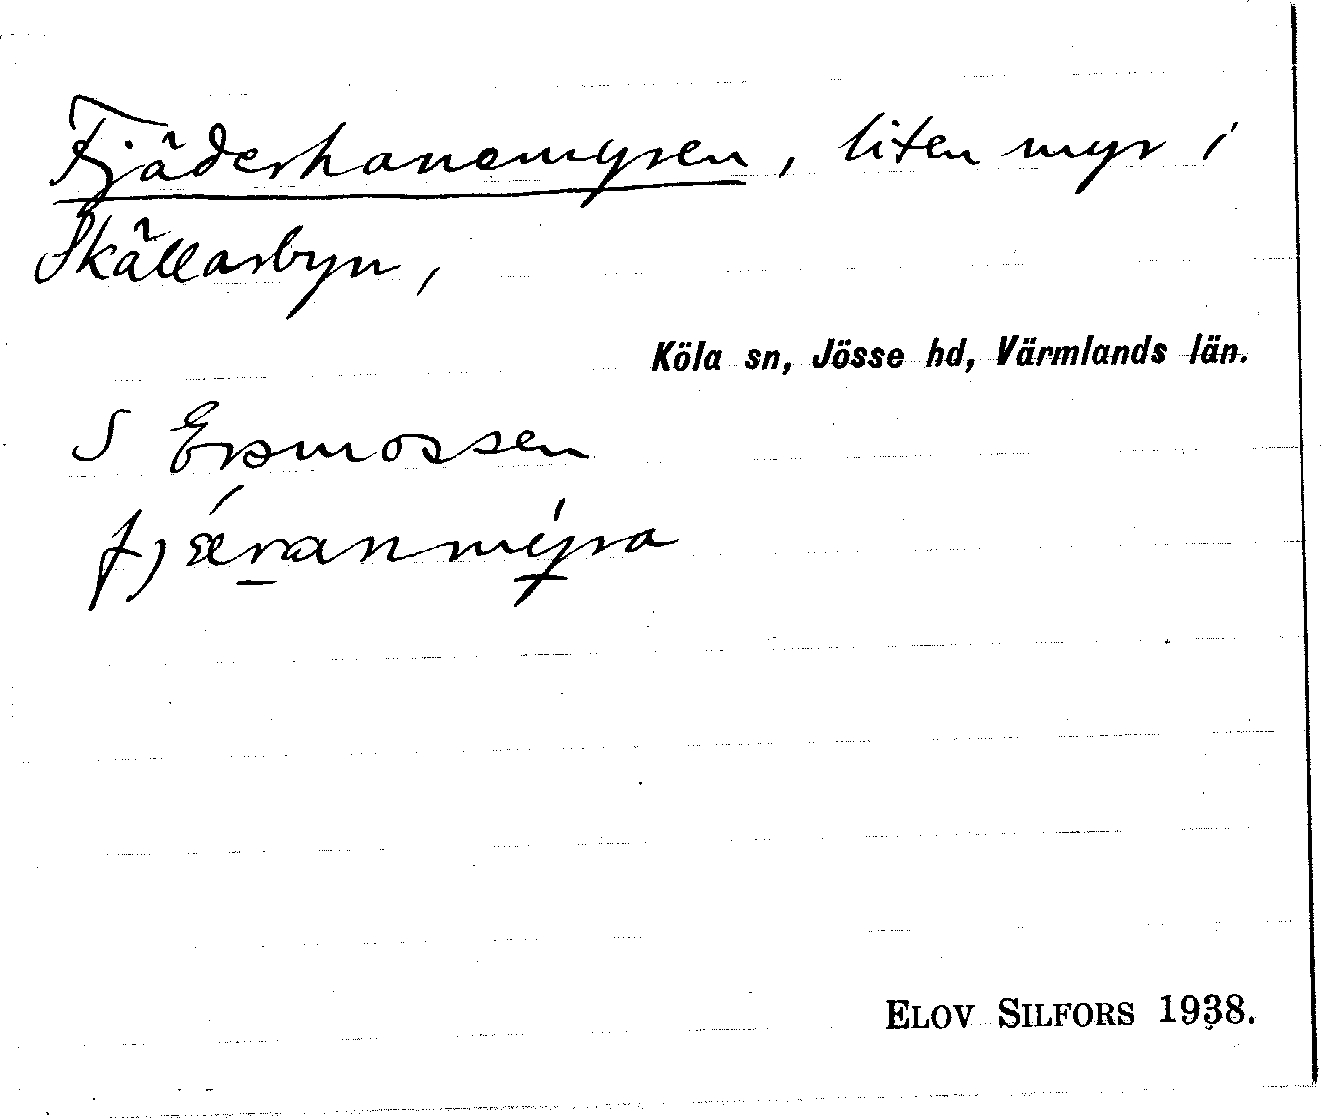 Fjäderhanemyren, liten myr i
Skällarbyn,
Köla sn, Jösse hd, Värmlands län.
S Ersmossen
fjǽranmýra
ELOV SILFORS 1938.